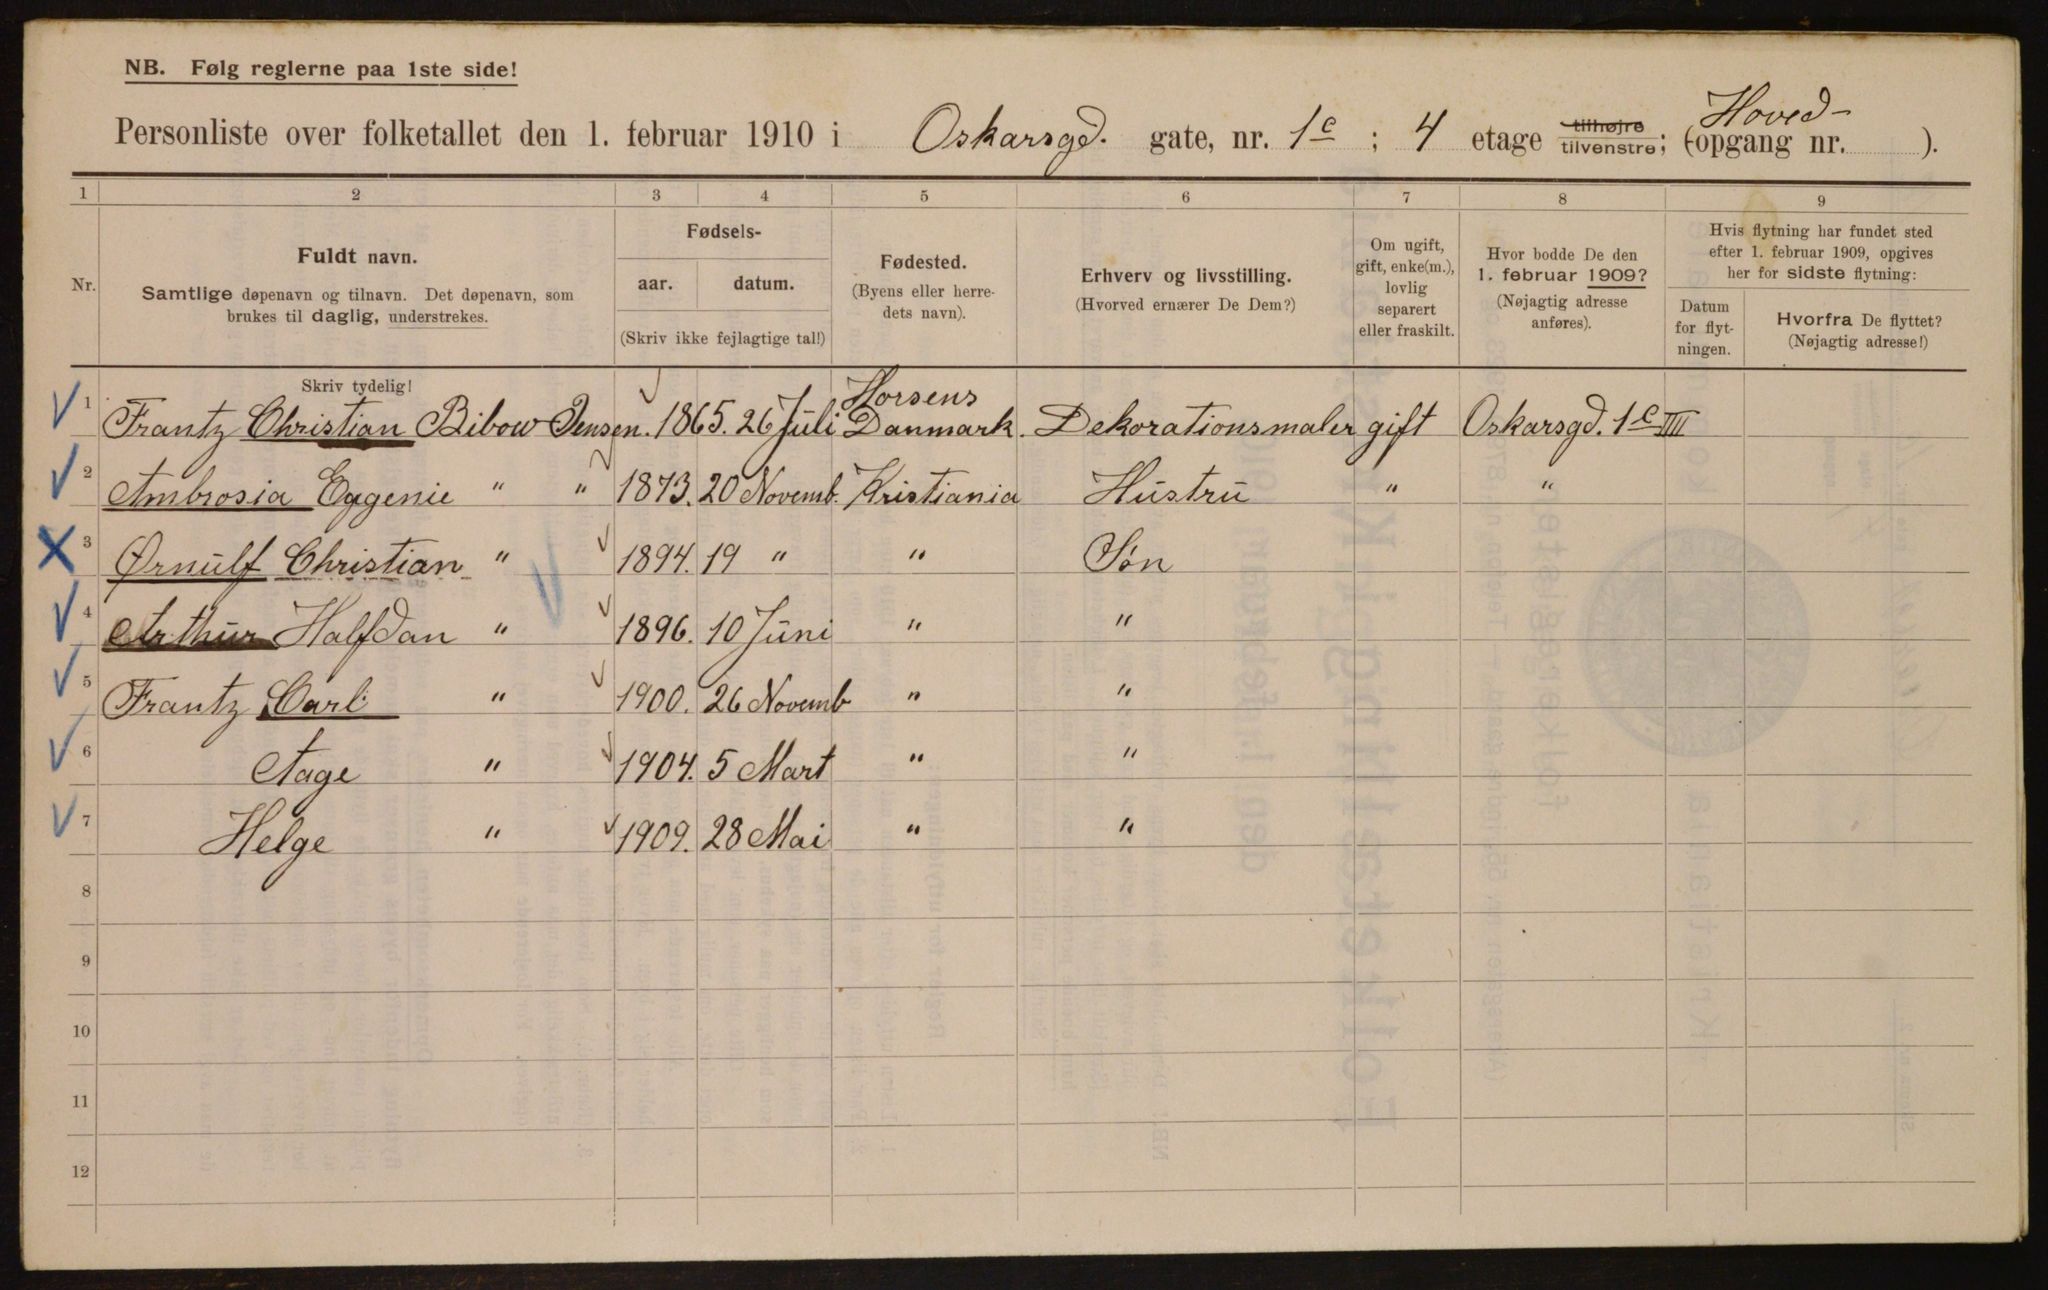 NB. Følg reglerne paa 1ste side!
Personliste over folketallet den 1. februar 1910 i Oskarsgd. gate, nr. 1c ; 4 etage tilhøjre tilvenstre; (opgang nr. Hoved- ).
1 2 3 4 5 6 7 8 9
Nr.
Fuldt navn.
Samtlige døpenavn og tilnavn. Det døpenavn, som
brukes til daglig, understrekes.
Fødsels-
aar. datum.
(Skriv ikke fejlagtige tal!)
Fødested.
(Byens eller herre-
dets navn).
Erhverv og livsstilling.
(Hvorved ernærer De Dem?)
Om ugift,
gift, enke(m.),
lovlig
separert
eller fraskilt.
Hvor bodde De den
1. februar 1909?
(Nøjagtig adresse
anføres).
Hvis flytning har fundet sted
efter 1. februar 1909, opgives
her for sidste flytning:
Datum
for flyt-
ningen.
Hvorfra De flyttet?
(Nøjagtig adresse!)
Skriv tydelig!
1 Frantz Christian Bibow Jensen. 1865. 26 Juli Horsens Danmark. Dekorationsmaler gift Oskarsgd. 1c IIII
2 Ambrosia Eggenie " " 1873. 20 Novemb. Kristiania Hustru " "
3 Ørnulf Christian " 1894. 19 " " Søn
4 Arthur Halfdan " 1896. 10 Juni " "
5 Frantz Carl " 1900. 26 Novemb " "
6 Aage " 1904. 5 Mart " "
7 Helge " 1909. 28 Mai " "
8
9
10
11
12